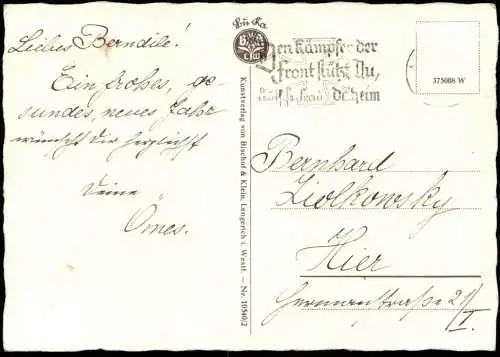 Liebes Berndile!
Ein frohes, ge-
sundes, neues Jahr
wünscht Dir herzlichst
Deine
Ömes.
Bu Ka
B K
Kunstverlag von Bischof & Klein, Lengerich i. Westf. — Nr. 10540/2
Den Kämpfer der
Front stützt Du,
Frau daheim
375088 W
Bernhard
Ziolkowsky
Hier
Hermanstraße 21/
I.